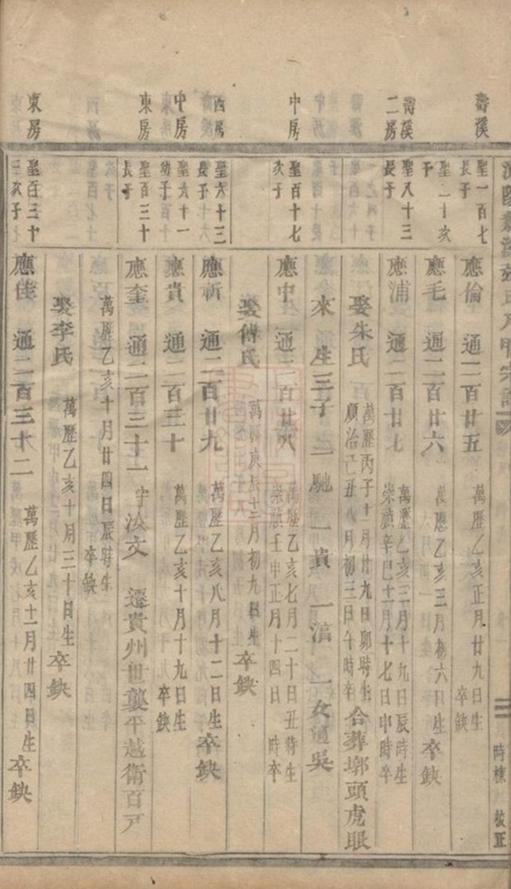 壽溪
聖一百七
長子
應倫 通二百廿五
萬歷乙亥正月廿九日生
卒缺
聖二十次
子
應毛 通二百廿六
萬歷乙亥三月初六日生 卒缺
壽溪
二房
聖八十三
長子
應浦 通二百廿七
萬歷乙亥三月十九日辰時生
崇禎辛巳十二月十七日申時卒
娶朱氏
萬歷丙子十月廿九日卯時生
順治己丑八月初三日午時卒
合葬墎頭虎眼
來 生三子 一馳 一貴 一滔 一女適吳
中房
聖百十七
次子
應中 通二百廿八
萬歷乙亥七月二十日丑時生
崇禎壬申正月十四日 時卒
娶傅氏
萬歷庚辰十二月初九日生 卒缺
西房
聖六十三
長子
應新 通二百廿九
萬歷乙亥八月十二日生 卒缺
中房
聖六十一
幼子
應貴 通二百三十
萬歷乙亥十月十九日生
卒缺
東房
聖百三十
長子
應奎 通二百三十一 字汝文 遷貴州世襲平越衛百戶
萬歷乙亥十月廿四日辰時生
卒缺
娶李氏
萬歷乙亥十月三十日生 卒缺
東房
聖百三十
三次子
應佳 通二百三十二
萬歷乙亥十二月廿四日生
卒缺
時棟 校正